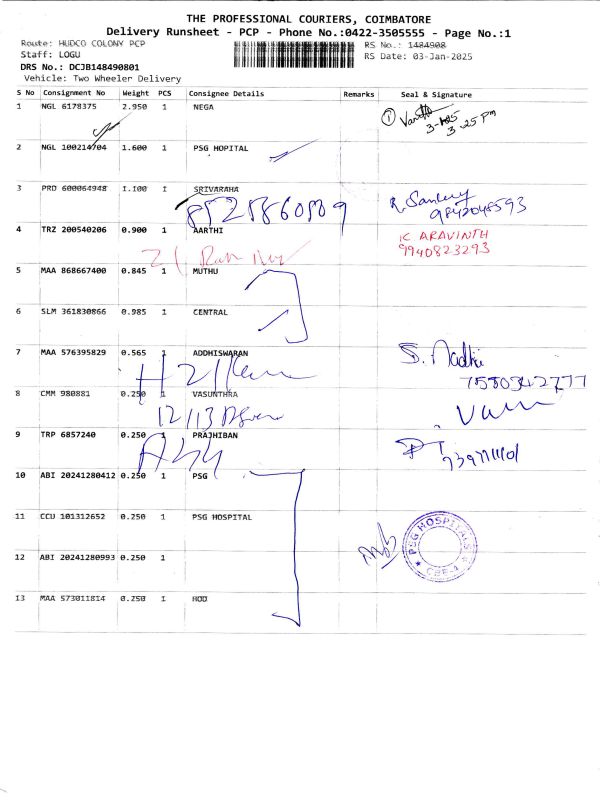 THE PROFESSIONAL COURIERS, COIMBATORE
Delivery Runsheet - PCP - Phone No.:0422-3505555 - Page No.:1
Route: HUDCO COLONY PCP
RS No.: 1484908
Staff: LOGU
RS Date: 03-Jan-2025
DRS No.: DCJB148490801
Vehicle: Two Wheeler Delivery
S No Consignment No Weight PCS Consignee Details Remarks Seal & Signature
1 NGL 6178375 2.950 1 NEGA
3.25 Pm
2 NGL 100214704 1.600 1 PSG HOPITAL
3 PRD 600064948 1.100 1 SRIVARAHA
4 TRZ 200540206 0.900 1 AARTHI
K ARAVINTH
9940823293
5 MAA 868667400 0.845 1 MUTHU
6 SLM 361830866 0.985 1 CENTRAL
7 MAA 576395829 0.565 1 ADDHISWARAN
8 CMM 980881 0.250 1 VASUNTHRA
9 TRP 6857240 0.250 1 PRAJHIBAN
10 ABI 20241280412 0.250 1 PSG
11 CCU 101312652 0.250 1 PSG HOSPITAL
PSG HOSPITALS
CBE-4
12 ABI 20241280993 0.250 1
13 MAA 573011814 0.250 1 HOD